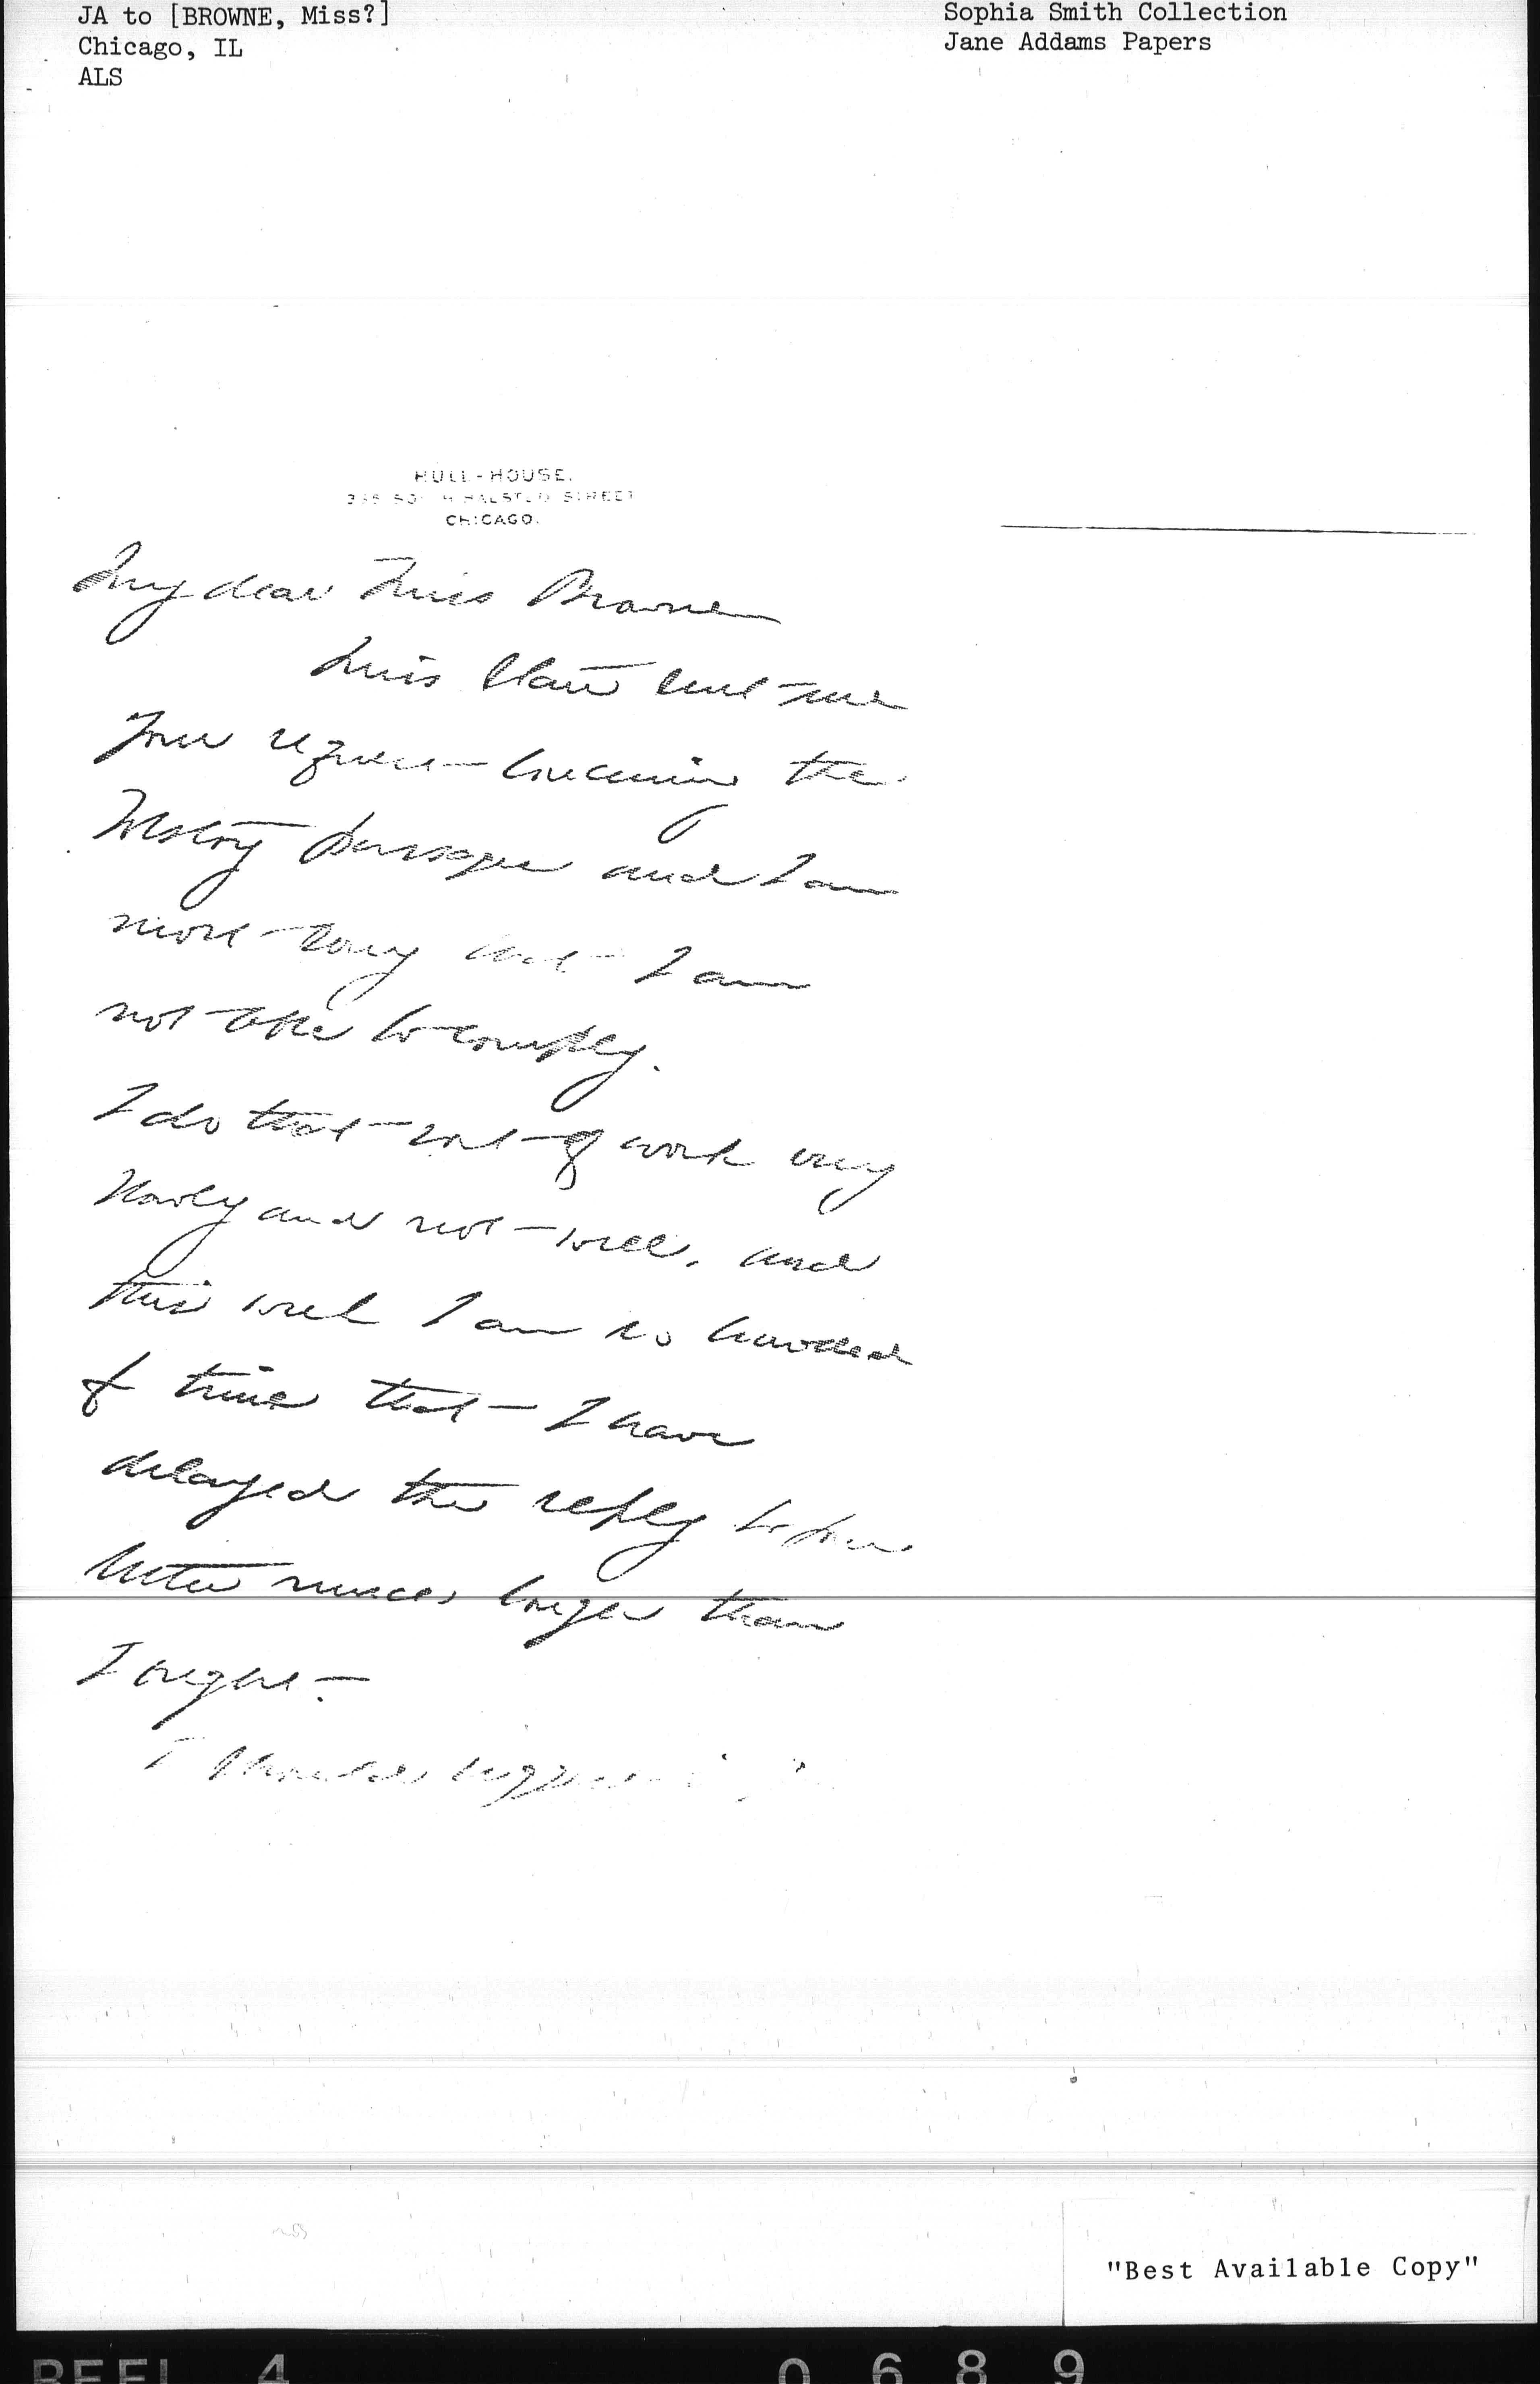 JA to [BROWNE, Miss?]
Chicago, IL
ALS
Sophia Smith Collection
Jane Addams Papers
HULL-HOUSE.
335 SOUTH HALSTED STREET
CHICAGO.
My dear Miss Browne
Miss Starr sent me
your request concerning the
Tolstoy passages and I am
most sorry that I am
not able to comply.
I do that sort of work very
slowly and not well, and
this week I am so crowded
of time that I have
delayed the reply to your
letter much longer than
I ought.
I should suggest
"Best Available Copy"
REEL 4 0689